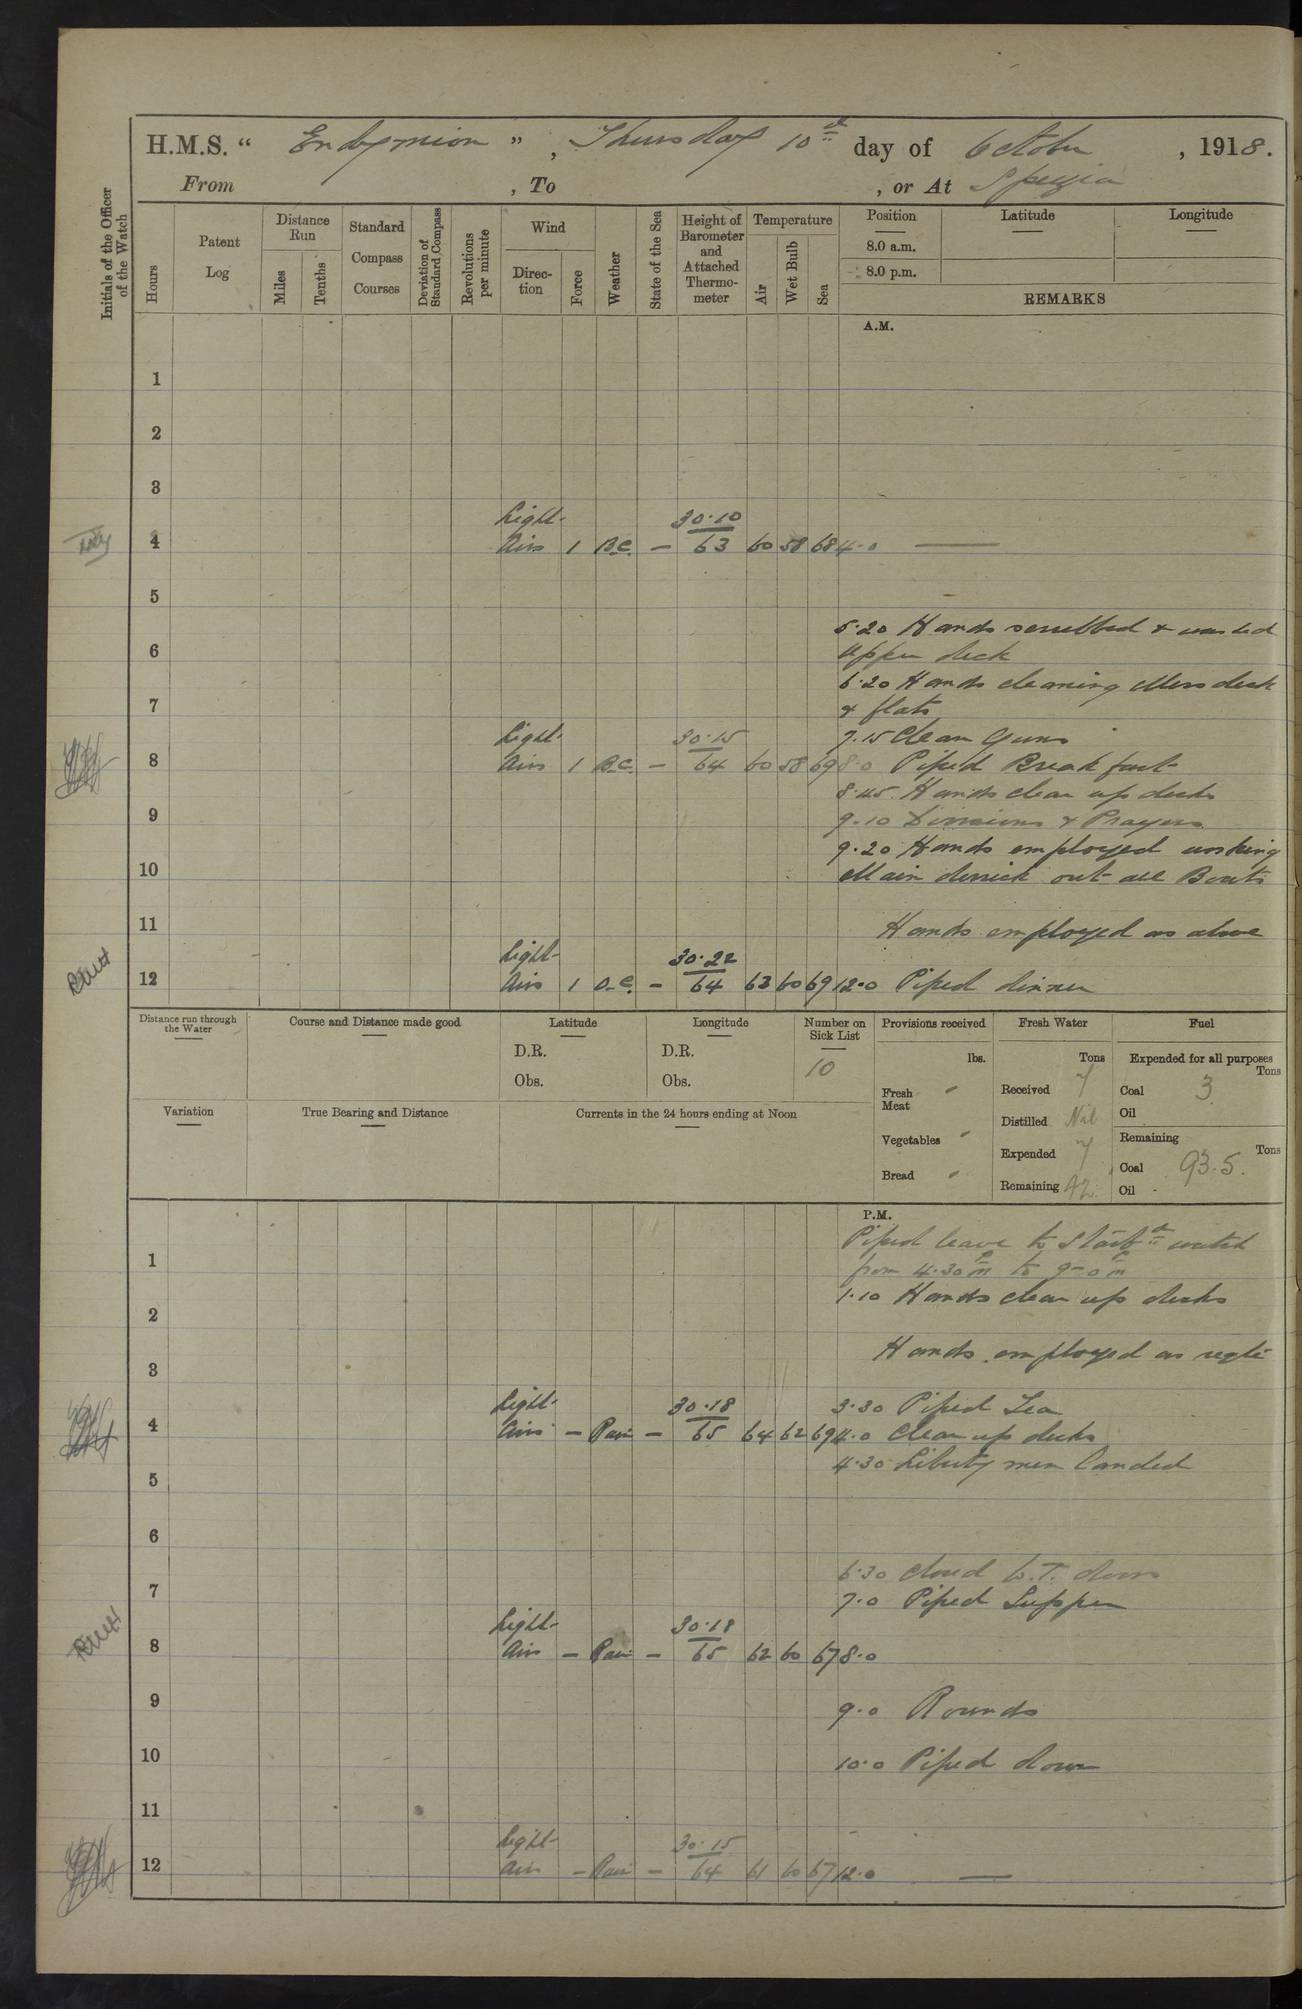 H.M.S. “ Endymion ” , Thursday 10th day of October , 1918.
From , To , or At Spezia
Initials of the Officer of the Watch
Hours
Patent Log
Distance Run
Miles
Tenths
Standard Compass Courses
Deviation of Standard Compass
Revolutions per minute
Wind
Direction
Force
Weather
State of the Sea
Height of Barometer and Attached Thermometer
Temperature
Air
Wet Bulb
Sea
Position
Latitude
Longitude
8.0 a.m.
8.0 p.m.
REMARKS
A.M.
1
2
3
Light 30.10
4 Airs 1 B.C. — 63 60 58 68 4.0 —
5
5.20 Hands scrubbed & washed
6 Upper deck
6.20 Hands cleaning Mess deck
7 & flats
Light 30.15 7.15 Clean Guns
8 Airs 1 B.C. — 64 60 58 69 8.0 Piped Breakfast
8.45. Hands clean up decks
9 9.10 Divisions & Prayers
9.20 Hands employed working
10 Main derrick out all Boats
11 Hands employed as above
Light 30.22
12 Airs 1 O.C. — 64 63 60 69 12.0 Piped dinner
Distance run through the Water
Course and Distance made good
Latitude
D.R.
Obs.
Longitude
D.R.
Obs.
Number on Sick List
10
Provisions received
lbs.
Fresh Meat "
Vegetables "
Bread "
Fresh Water
Tons
Received 7
Distilled Nil
Expended 7
Remaining 42
Fuel
Expended for all purposes
Tons
Coal 3
Oil
Remaining
Tons
Coal 93.5.
Oil -
Variation
True Bearing and Distance
Currents in the 24 hours ending at Noon
P.M.
Piped leave to Starbd watch
1 from 4.30 pm to 9-0 pm
1.10 Hands clear up decks
2
Hands employed as reqte
3
Light 30.18 3.30 Piped Tea
4 Airs — Rain — 65 64 62 69 4.0 Clean up decks
4.30 Liberty men landed
5
6
6.30 closed W.T. doors
7 7.0 Piped Supper
Light 30.18
8 Airs — Rain — 65 62 60 67 8.0
9 9.0 Rounds
10 10.0 Piped down
11
Light 30.15
12 Airs — Rain — 64 61 60 67 12.0 —